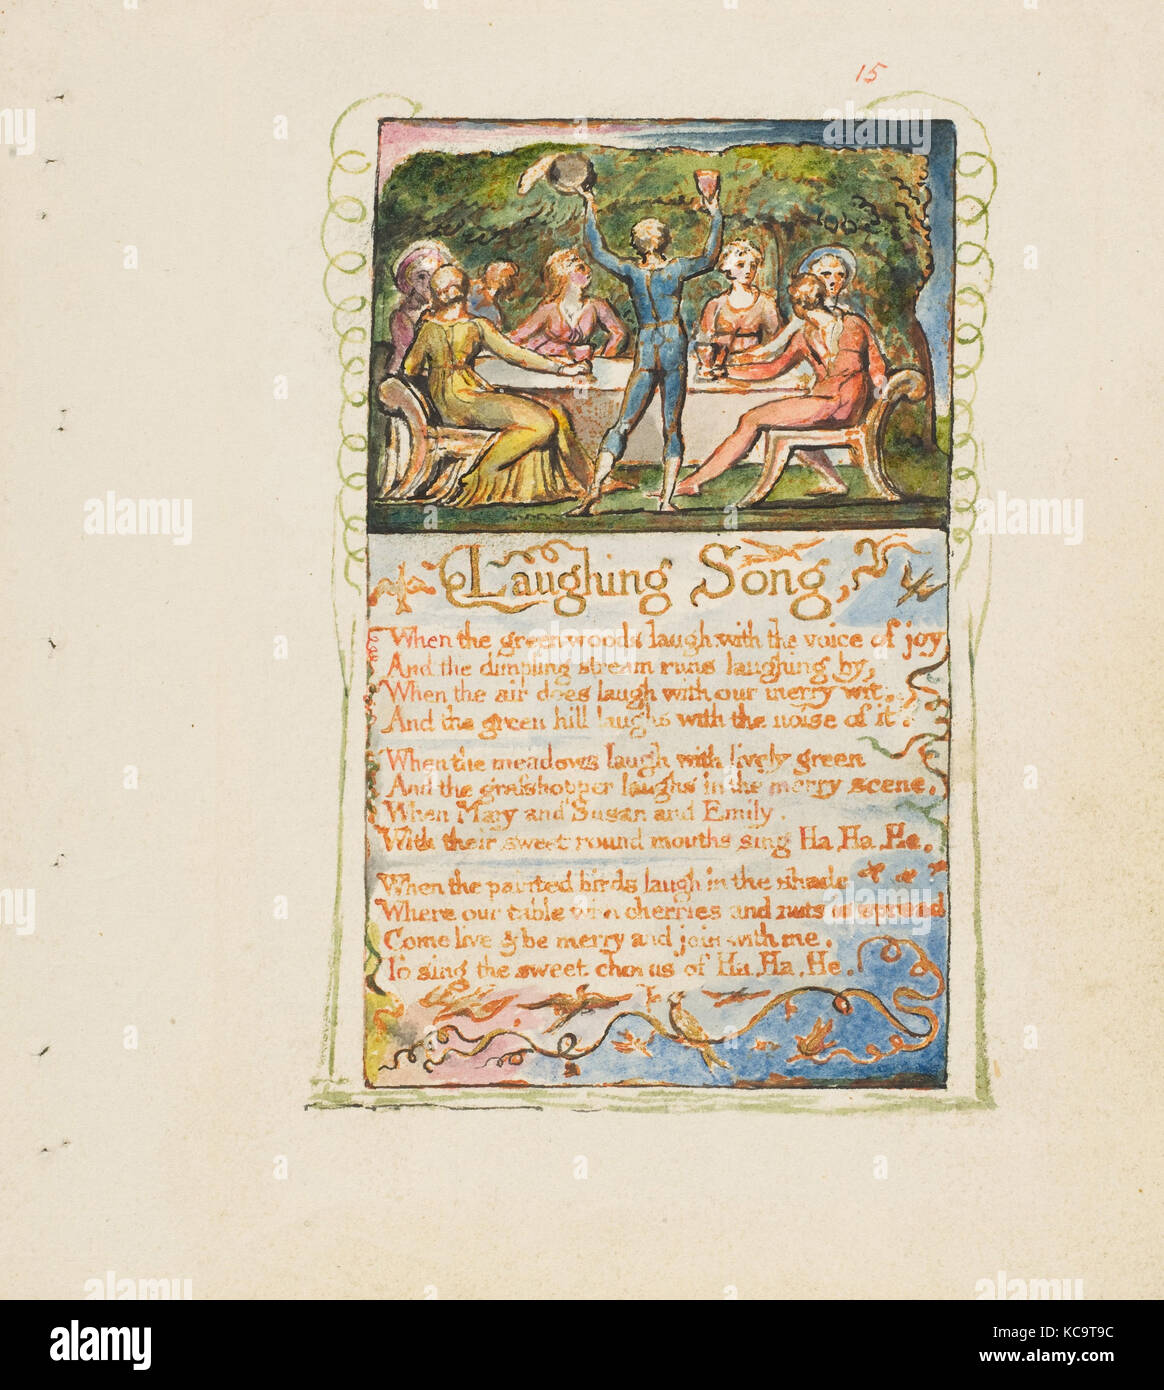 15
Laughing Song,
When the green woods laugh with the voice of joy
And the dimpling stream runs laughing by,
When the air does laugh with our merry wit,
And the green hill laughs with the noise of it.
When the meadows laugh with lively green
And the grasshopper laughs in the merry scene,
When Mary and Susan and Emily,
With their sweet round mouths sing Ha, Ha, He.
When the painted birds laugh in the shade
Where our table with cherries and nuts is spread
Come live & be merry and join with me,
To sing the sweet chorus of Ha, Ha, He.
alamy
alamy
Image ID: KC9T9C
www.alamy.com